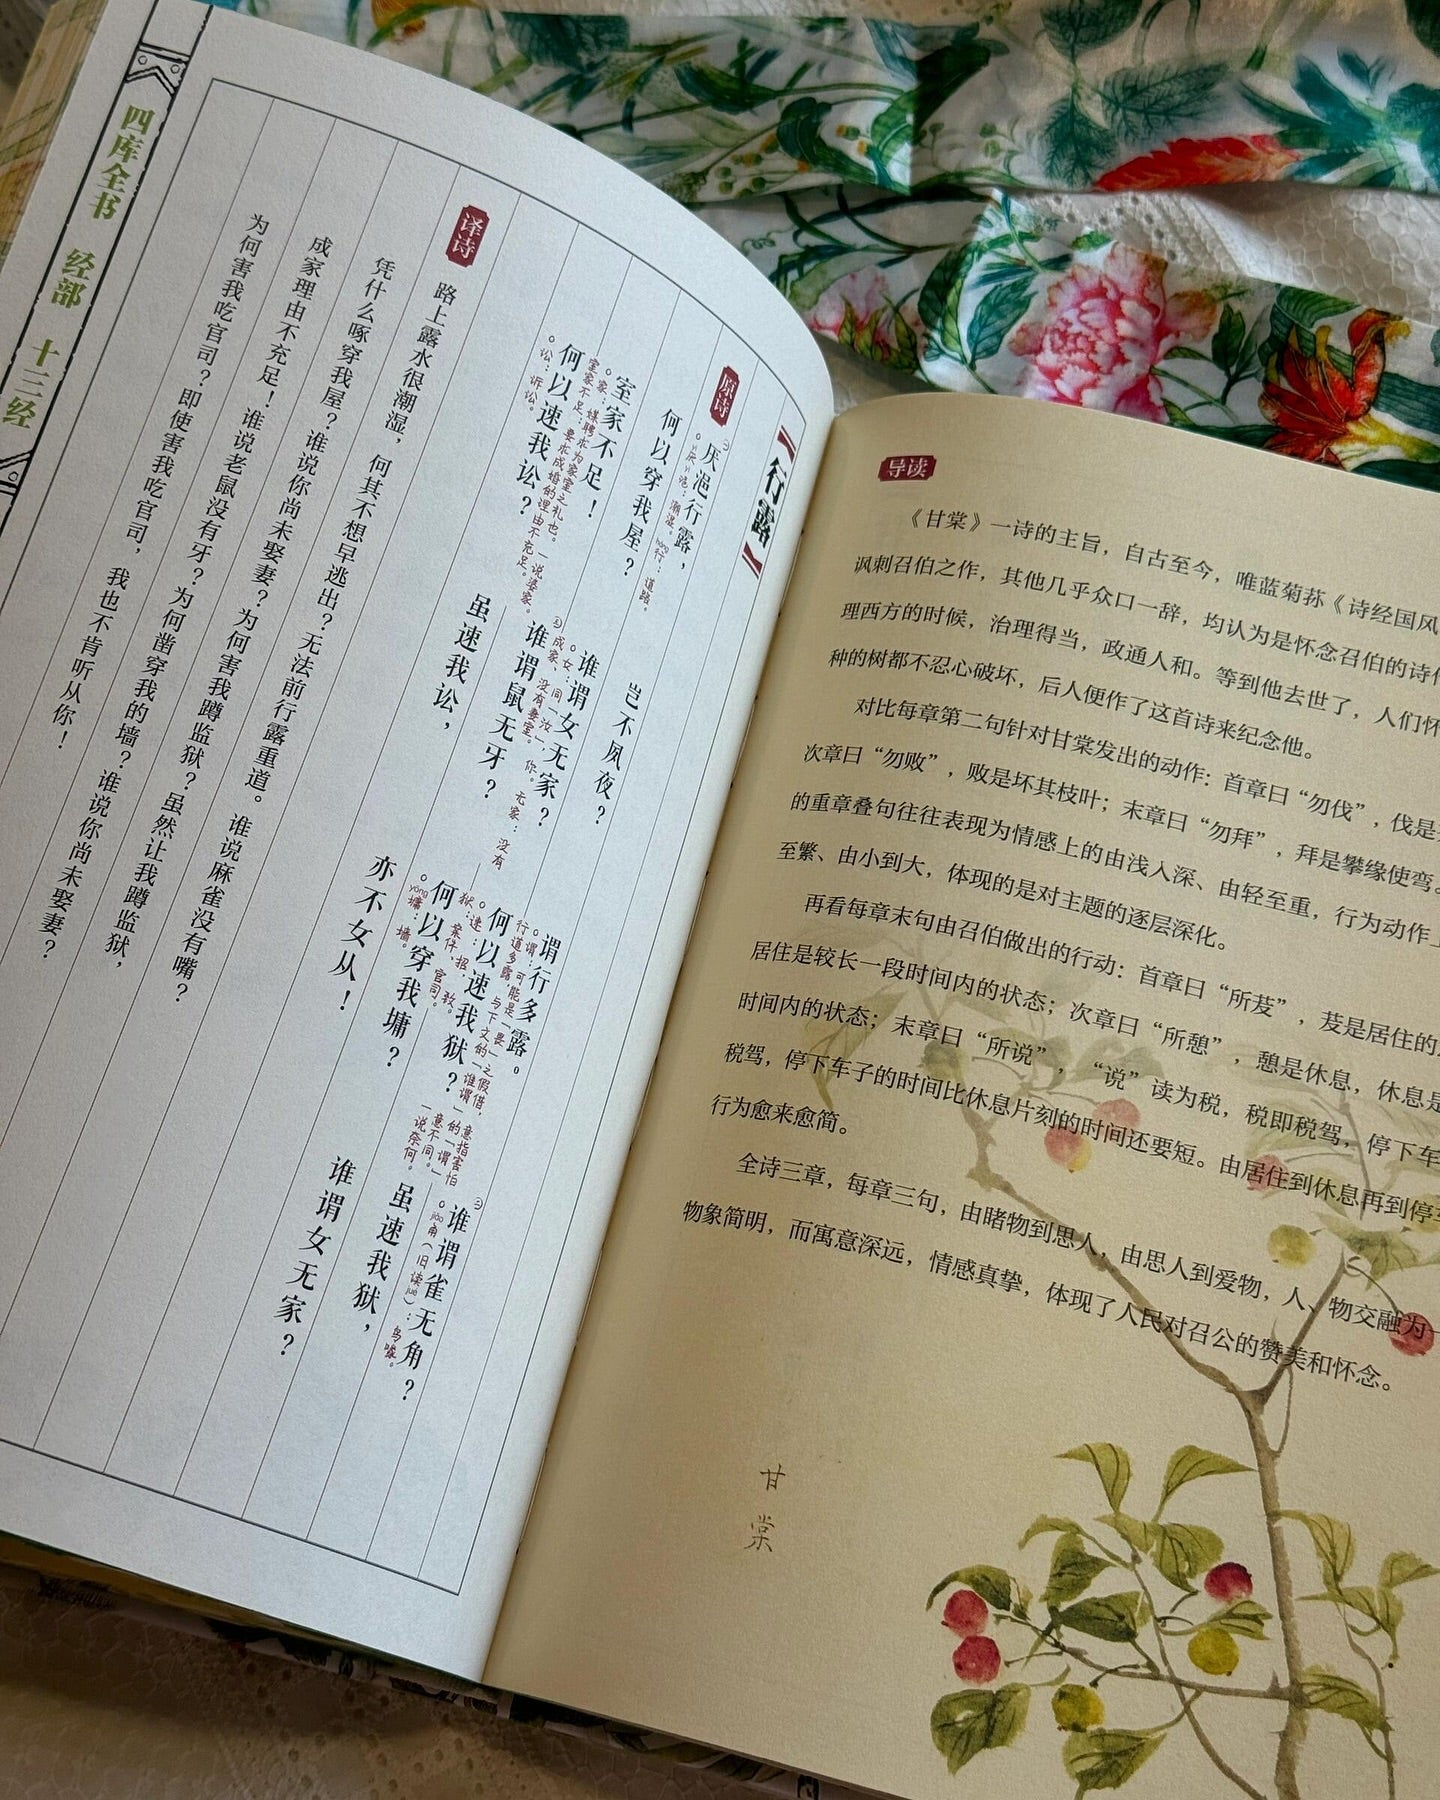 四库全书 经部 十三经
行露
原诗
㊀厌浥行露，厌yì浥：潮湿。háng行：道路。岂不夙夜？谓行多露。谓：可能是“畏”之假借，意指害怕行道多露，与下文的“谁谓”的“谓”意不同。一说奈何。㊁谁谓雀无角？jiǎo角（旧读jué）：鸟喙。
何以穿我屋？谁谓女无家？女：同“汝”，你。无家：没有成家、没有妻室。何以速我狱？速：招，致。狱：案件、官司。虽速我狱，
室家不足！家：媒聘求为家室之礼也。一说婆家。室家不足：要求成婚的理由不充足。㊂谁谓鼠无牙？何以穿我墉？yōng墉：墙。谁谓女无家？
何以速我讼？讼：诉讼。虽速我讼，亦不女从！
译诗
路上露水很潮湿，何其不想早逃出？无法前行露重道。谁说麻雀没有嘴？
凭什么啄穿我屋？谁说你尚未娶妻？为何害我蹲监狱？虽然让我蹲监狱，
成家理由不充足！谁说老鼠没有牙？为何凿穿我的墙？谁说你尚未娶妻？
为何害我吃官司？即使害我吃官司，我也不肯听从你！
导读
《甘棠》一诗的主旨，自古至今，唯蓝菊荪《诗经国风
讽刺召伯之作，其他几乎众口一辞，均认为是怀念召伯的诗作
理西方的时候，治理得当，政通人和。等到他去世了，人们怀
种的树都不忍心破坏，后人便作了这首诗来纪念他。
对比每章第二句针对甘棠发出的动作：首章曰“勿伐”，伐是
次章曰“勿败”，败是坏其枝叶；末章曰“勿拜”，拜是攀缘使弯。
的重章叠句往往表现为情感上的由浅入深、由轻至重，行为动作
至繁、由小到大，体现的是对主题的逐层深化。
再看每章末句由召伯做出的行动：首章曰“所茇”，茇是居住的
居住是较长一段时间内的状态；次章曰“所憩”，憩是休息，休息是
时间内的状态；末章曰“所说”，“说”读为税，税即税驾，停下车
税驾，停下车子的时间比休息片刻的时间还要短。由居住到休息再到停
行为愈来愈简。
全诗三章，每章三句，由睹物到思人，由思人到爱物，人、物交融为一
物象简明，而寓意深远，情感真挚，体现了人民对召公的赞美和怀念。
甘棠